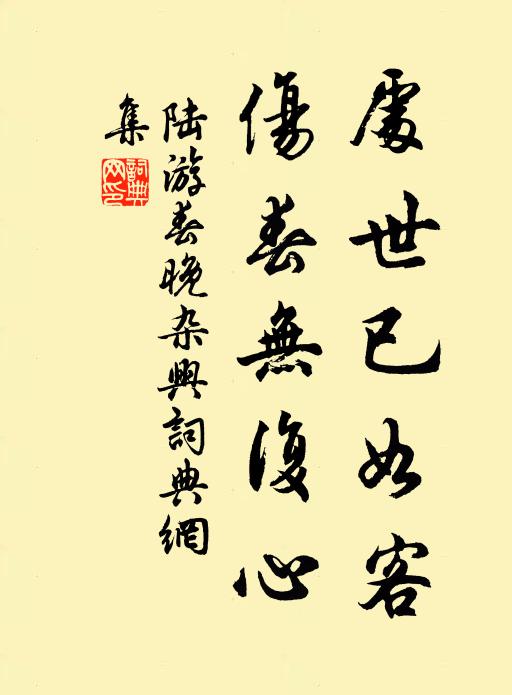 處世已如客
傷春無復心
陸游春晚杂興詞典網
集
詞典
网印